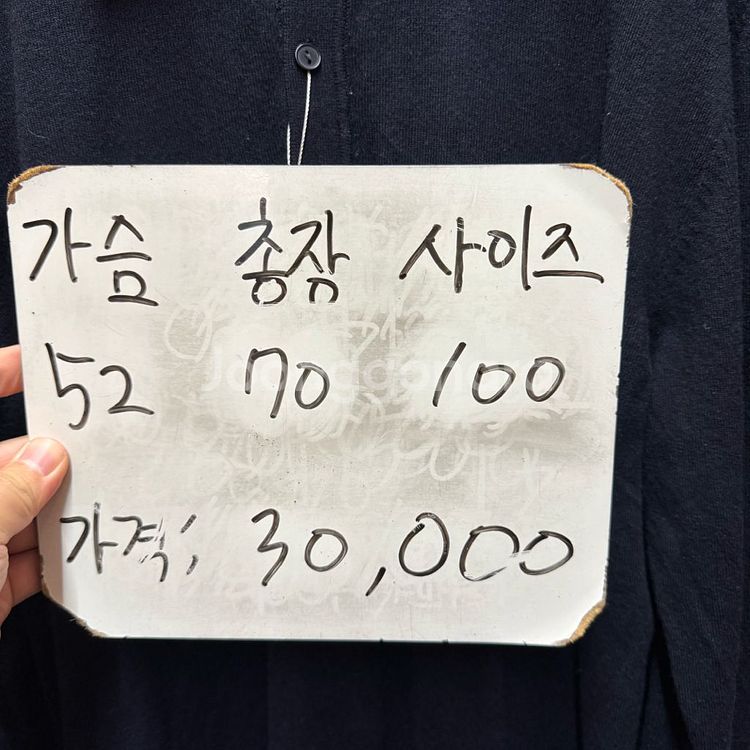 가슴 총장 사이즈
52 70 100
가격; 30,000